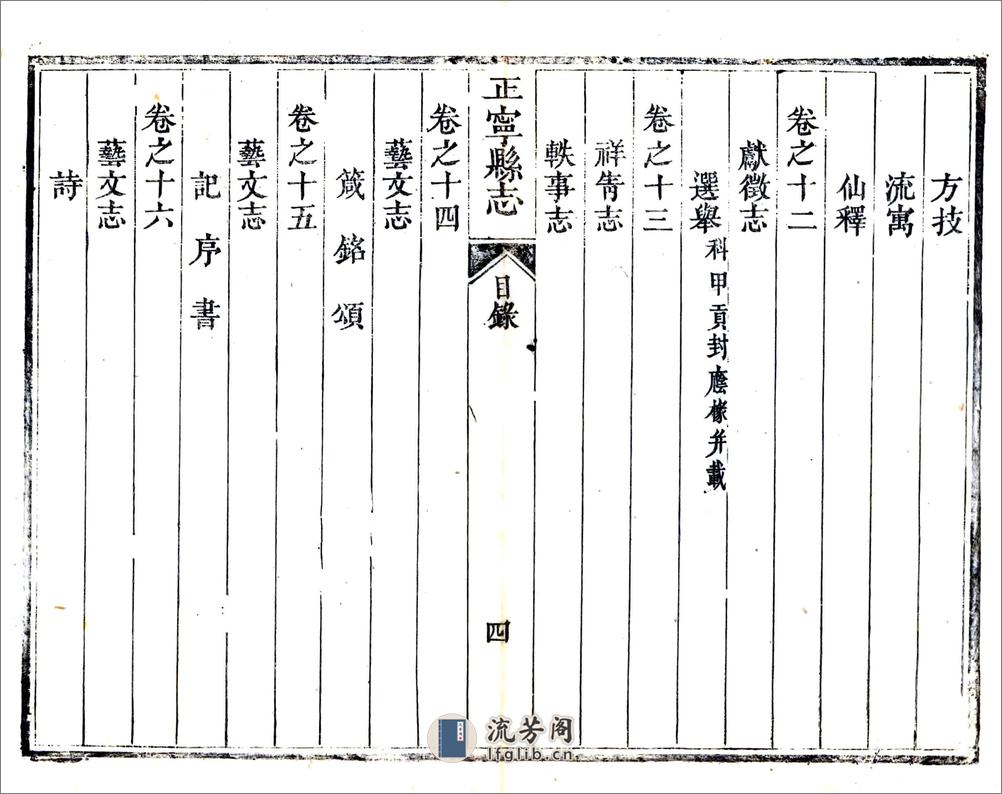 方技
流寓
仙釋
卷之十二
獻徵志
選舉科甲貢封廕掾并載
卷之十三
祥眚志
軼事志
正寧縣志
目錄
四
卷之十四
藝文志
箴銘頌
卷之十五
藝文志
記序書
卷之十六
藝文志
詩
流芳阁
lfglib.cn